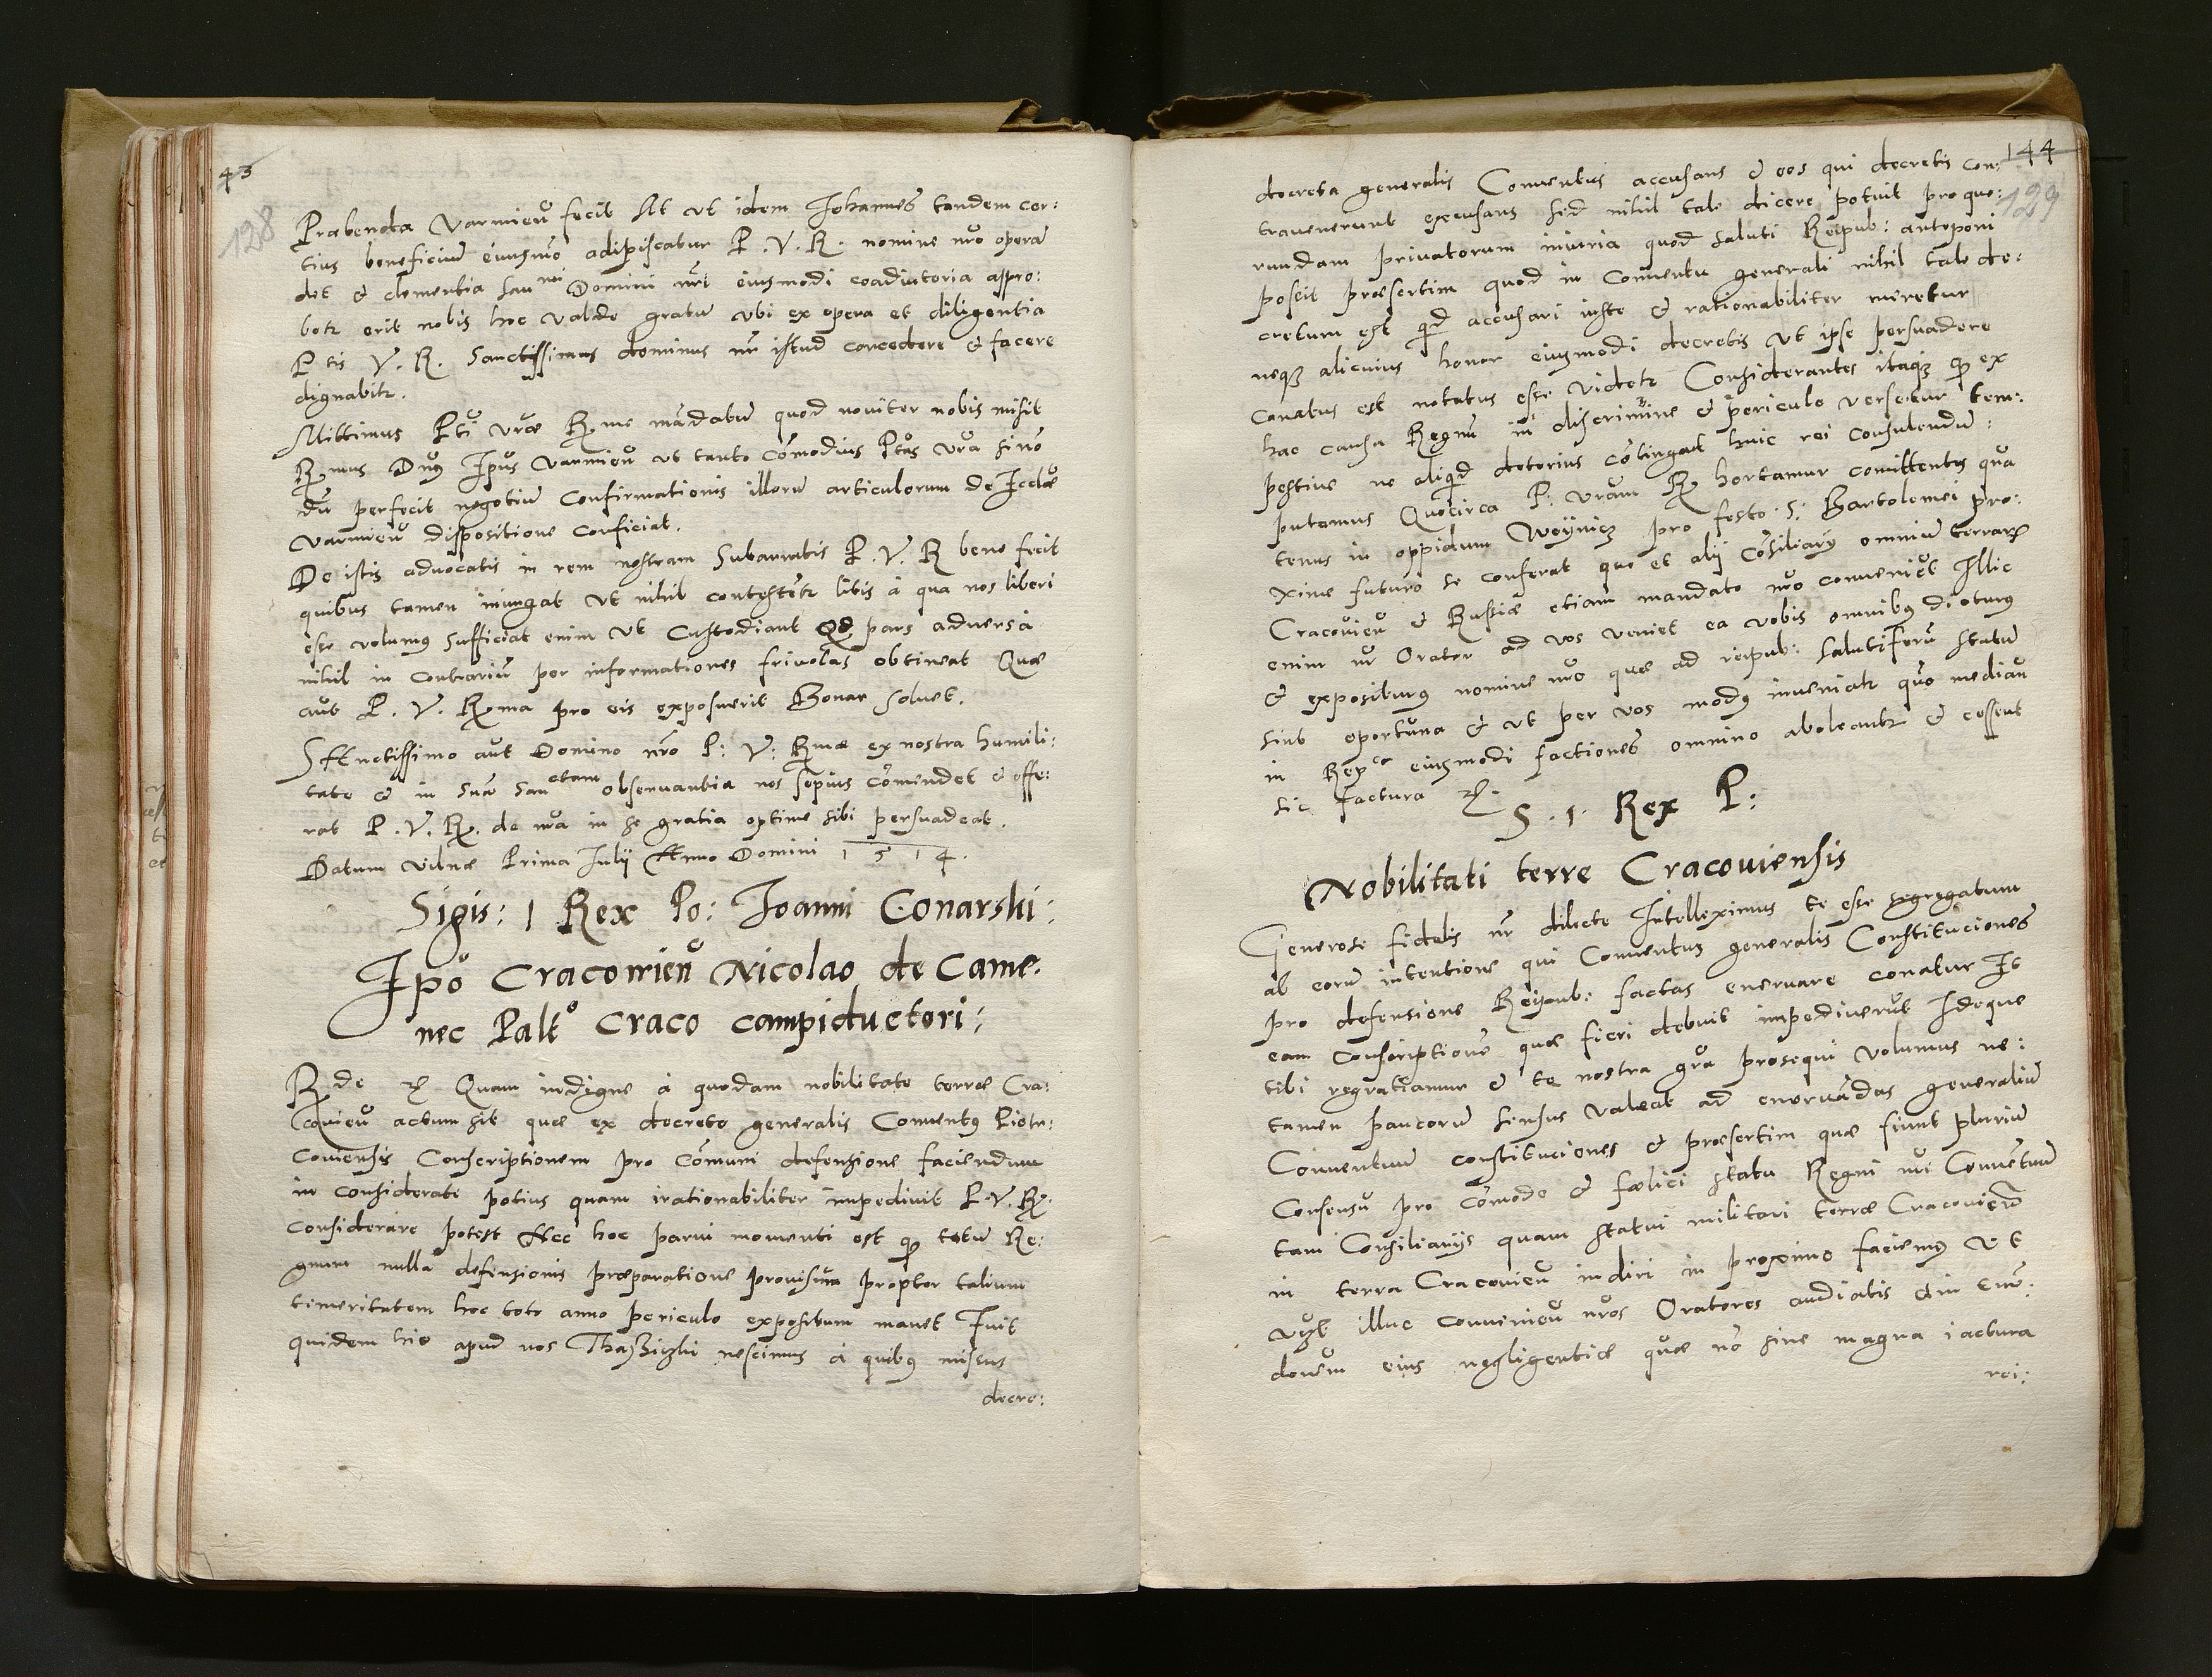 43
128
Præbenda Varmieñ fecit At ut idem Johannes tandem cer:
tius beneficium eiusmõ adipiscatur P. V. R. nomine nrõ operam
det & clementia San^mi Domini nri eiusmodi coadiutoria appro:
betr erit nobis hoc valde gratũ ubi ex opera et diligentia
P tis V. R. Sanctissimus dominus nr istud concedere & facere
dignabitr.
Mittimus Pti vræ Rme mãdatum quod noviter nobis misit
Rmus Dnus Epus Varmieñ ut tanto cõmodius Ptas vra si nõ
dũ perfecit negotiũ Confirmationis illorũ articulorum de Ecclæ
Varmieñ dispositione conficiat.
De istis advocatis in rem nostram Subarratis P. V. R bene fecit
quibus tamen iniungat ut nihil contestentr litis à qua nos liberi
esse volumus sufficiat enim ut Custodiant qd pars adversa
nihil in contrariũ per informationes frivolas obtineat Quæ
aũt P. V. Rma pro eis exposuerit Bonar solvet.
SAnctissimo aũt Domino nrõ P: V: Rmæ ex nostra humili:
tate & in Suã San^ctam observantia nos sepius cõmendet & offe:
rat P. V. R. de nra in se gratia optime sibi persuadeat.
Datum vilnæ Prima Julij Anno Domini 1514.
Sigis: 1 Rex Po: Joanni Conarski:
Epõ Cracovieñ Nicolao de Came.
nec Palt^o Craco campiductori:
R de &c Quam indigne à quodam nobilitate terræ Cra:
covieñ actum sit quæ ex decreto generalis Conventus Piotr:
coviensis Conscriptionem pro cõmuni defensione faciendam
in considerate potius quam irationabiliter impedivit P. V. R.
considerare potest Nec hoc parvi momenti est qp totũ Re:
gnum nulla defensionis præparatione provisum propter talium
timeritatem hoc toto anno periculo expositum manet Fuit
quidem hic apud nos Thasziczki nescimus à quibus missus
decre:
144
129
decreta generalis Conventus accusans & eos qui decretis con:
travenerunt excusans sed nihil tale dicere potuit pro quo:
rundam privatorum iniuria quod saluti Reipub: anteponi
poseit præsertim quod in Conventu generali nihil tale de:
cretum est qd accusari iuste & rationabiliter meretur
neqz alicuius honor eiusmodi decretis ut ipse persuadere
conatus est notatus esse videtr Considerantes itaqz qp ex
hac causa Regnũ in discrimine & periculo versetur tem:
pestive ne aliqd deterius cõtingat huic rei consulendũ:
putamus Quocirca P: vram R hortamur comittentes qua
tenus in oppidum Woijnicz pro festo S: Bartolomei pro:
xime futuro se conferat quo et alij cõsiliarij omniũ terrarz
Cracovieñ & Russiæ etiam mandato nrõ convenient Illic
enim nr Orator ad vos veniet ea vobis omnibus dicturus
& expositurus nomine nrõ quæ ad reipub: salutiferũ statum
sint oportuna & ut per vos modus inveniatr quo median
in Rep^ca eiusmodi factiones omnino aboleantr & cessent
sic factura &c.
S. 1. Rex P:
Nobilitati terre Cracoviensis
Generose fidelis nr dilecte Intelleximus te esse segregatum
ab eorũ intentione qui Conventus generalis Constituciones
pro defensione Reipub: factas enervare conatur Et
eam conscriptionẽ quæ fieri debuit impediverũt Ideque
tibi regratiamur & te nostra gra prosequi volumus ne:
tamen paucorũ sensus valeat ad enervãdas generaliũ
Conventuum constituciones & præsertim quæ fiunt pluriũ
Consensu pro cõmodo & fœlici statu Regni nri Conventum
tam Consiliarijs quam statui militari terræ Cracovieñ
in terra Cracovieñ indici in proximo faciemus ut
illuc convenieñ nros Oratores audiatis & in eñ:
donem eius negligentiæ quæ nõ sine magna iactura
rei: